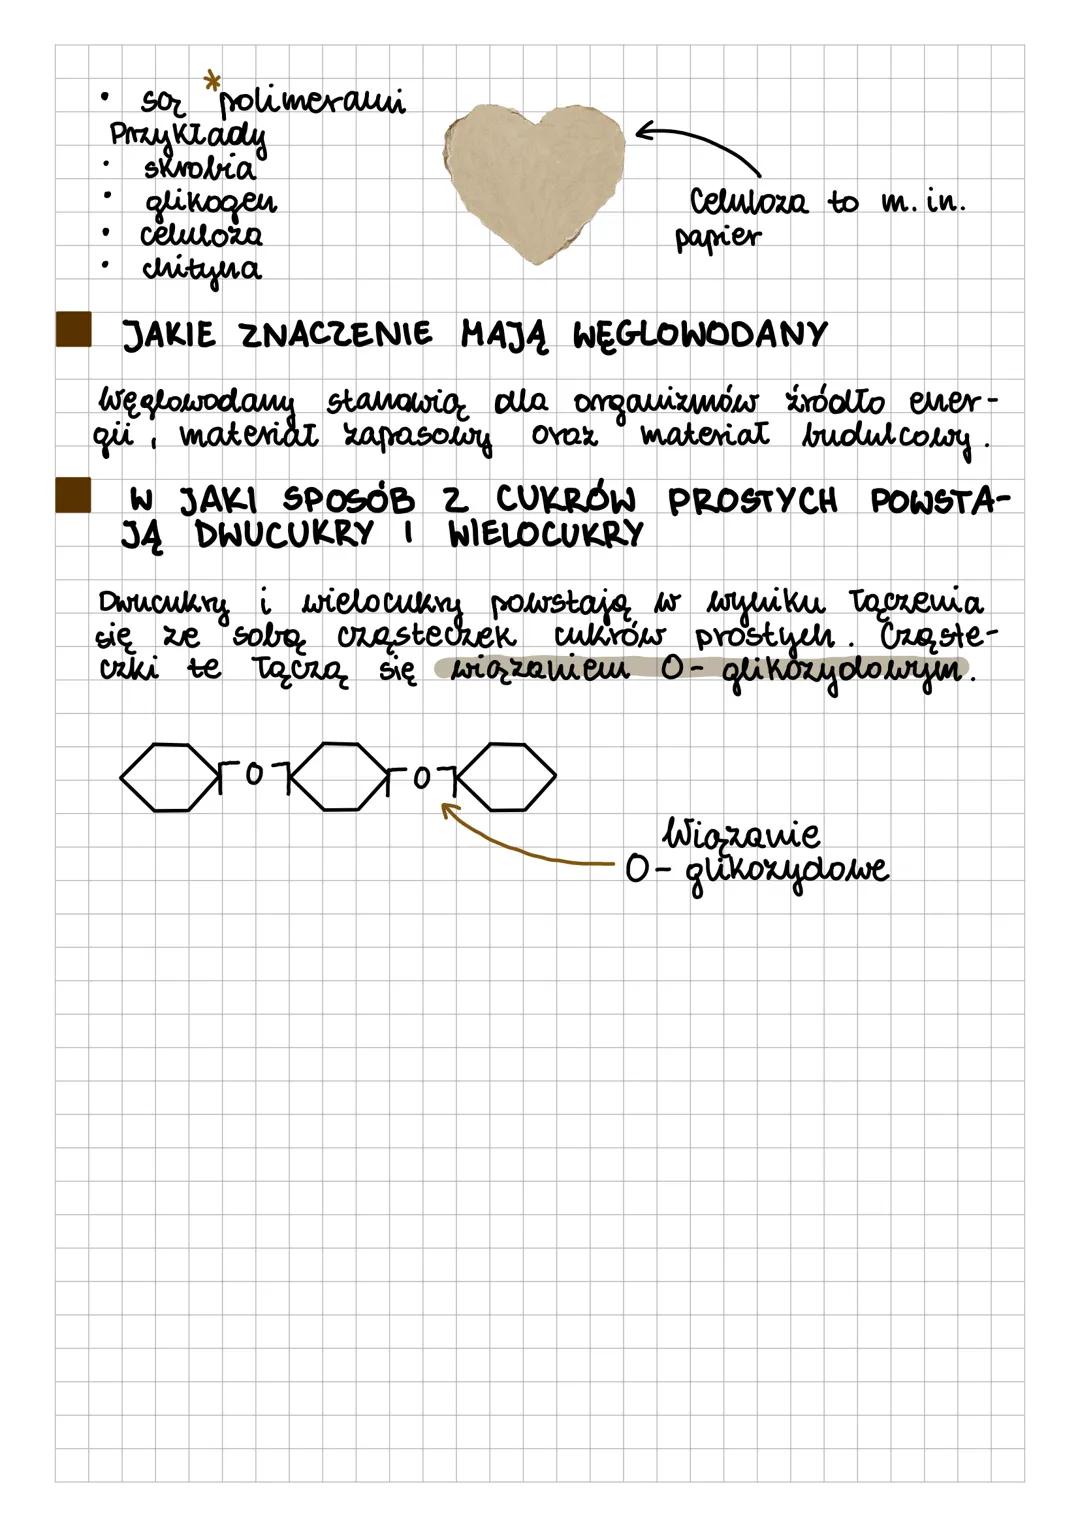 • są *polimerami
Przykłady
• skrobia
• glikogen
• celuloza
• chityna
Celuloza to m.in.
papier
JAKIE ZNACZENIE MAJĄ WĘGLOWODANY
Węglowodany stanowią dla organizmów źródło ener-
gii, materiał zapasowy oraz materiał budulcowy.
W JAKI SPOSÓB Z CUKRÓW PROSTYCH POWSTA-
JĄ DWUCUKRY I WIELOCUKRY
Dwucukry i wielocukry powstają w wyniku łączenia
się ze sobą cząsteczek cukrów prostych. Cząste-
czki te łączą się wiązaniem O-glikozydowym.
O O
Wiązanie
O-glikozydowe